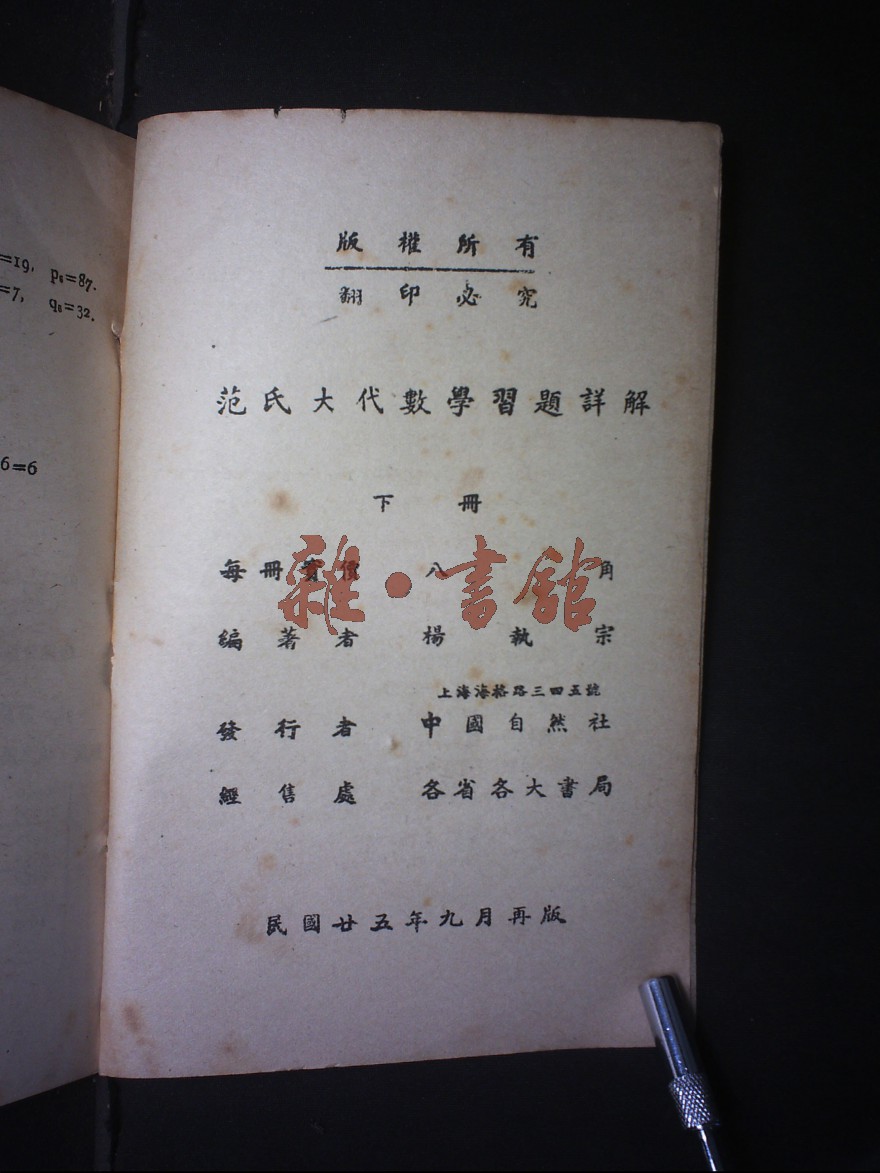 =19, p₆=87.
=7, q₆=32.
6=6
版權所有
翻印必究
范氏大代數學習題詳解
下冊
每冊實價 八角
編著者 楊執宗
上海海格路三四五號
發行者 中國自然社
經售處 各省各大書局
民國廿五年九月再版
雜·書館